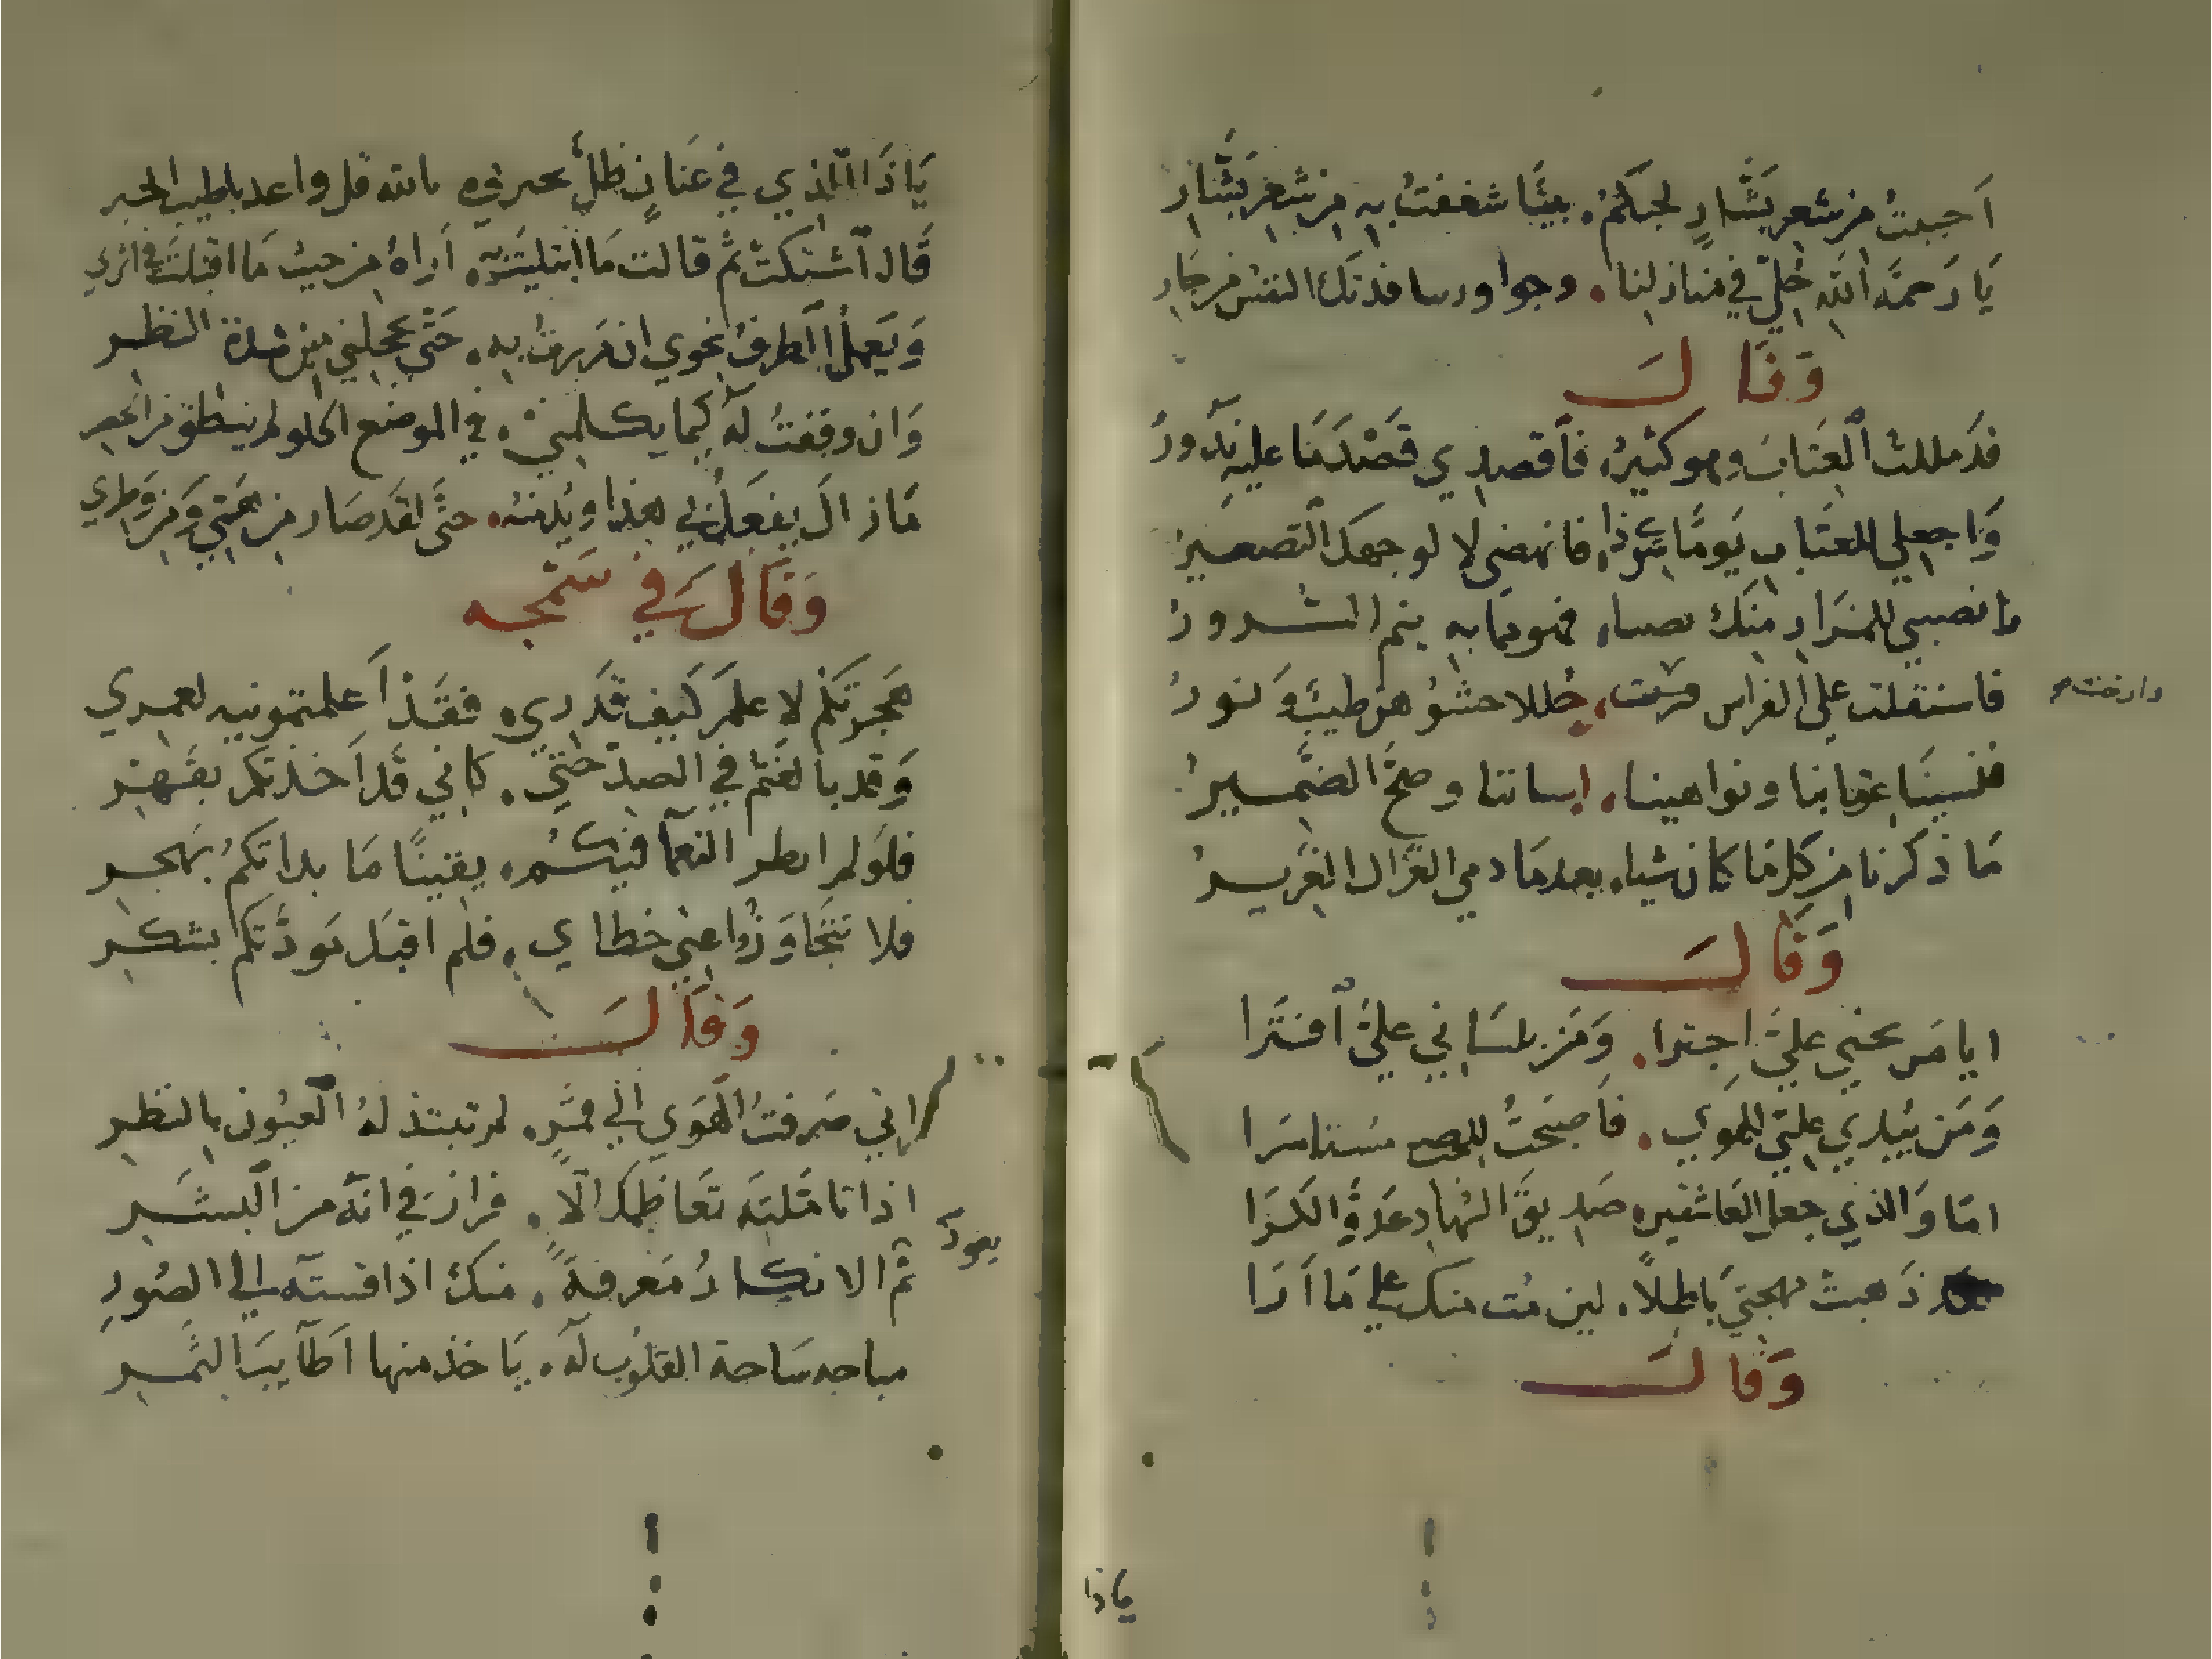 اَحببتُ من شعر بَشَّارٍ لحبكمُ. بيتًا شغفتُ به من شعر بَشَّارِ
يَا رَحمَة اللّه حُلّي في منازلنا. وجاورينا فدتك النفس من جَارِ
وَقَالَ
قد مللت العِتابَ وهو كثيرُ. فاقصدي قصْدَ مَا عليه ندورُ
وَاجعلي للعتاب يَومًا سوى ذا. فانهضي لا لوجهك التصعيرُ
وانصبي للمزار منك نصيبا. فهو مما به يتم السُرورُ
فاستقلت على الفراش فرشت. حُللا حشوُهن طيبٌ وَنورُ
وارخت
فنسينَا عتابنا وتواهبنا. اساتنا وصحَّ الضمَّيرُ
مَا ذكرنا من كل ما كان شيا. بعد مَا دمي الغزال الغريرُ
وَقَالَ
ايا مَن بحبي عليَّ اجترا. وَمَن بلسَاني عليَّ افترا
وَمَن بيدي علتي للهوى. فاَصبحتُ مستاسَرا
امَا وَالذي جعل العَاشقين. صَديقَ السُهاد عَدوَّ الكَرَا
ذَهبتْ مهجتي بَاطلاً. لين مُت منك على مَا اَرَا
وَقَالَ
ياذا
يَا ذَا الّذي في عَنَانٍ ظلَّ يخبرني. بالله قل واعد يا طيب الخبر
قَال اشتكتْ ثمّ قالت مَا ابتليتُ به. اَراهُ من حيث مَا اقبلتُ في اثري
وَيَعمل الطرفُ نحوي ان مَررتُ به. حَتَّى يخجلني من شدة النظر
وَان وقفتُ لهُ كيما يكلمني. في الموضع الخلو لم ينطق من الحصر
مَا زالَ يفعَلُ بي هذا ويُدمنه. حتَّى لقَد صَار من همّتي وَمن وَطري
وَقَالَ في سَمْجه
هَجرتكم لاعلمَ كَيف قَدري. فقَد اَعلمتمونيه لعمري
وَقد بالغتم في الصدّ حتي. كاني قَد اَخذتكم بقَهْر
فلوَ لم ابطر النعمآ فيكم. يقينًا مَا بداتكمُ بهجر
فلا تتجَاوَزُوا عني خطاي. فلم اقبَل مَودَّتكم بشكر
وَقَالَ
اني صَرفتُ الهَوى الى قمَرٍ. لم تبتذلهُ العيُون بالنظر
اذا تامَّلتَه تعَاظمك الا. قرار في انَّه من البشَر
ثم الانكارُ مَعرفةً. منك اذا قسته الى الصُور
يعودُ
مباحه سَاحة القلوب لهُ. يَاخذ منها اَطآيبَ الثمَر